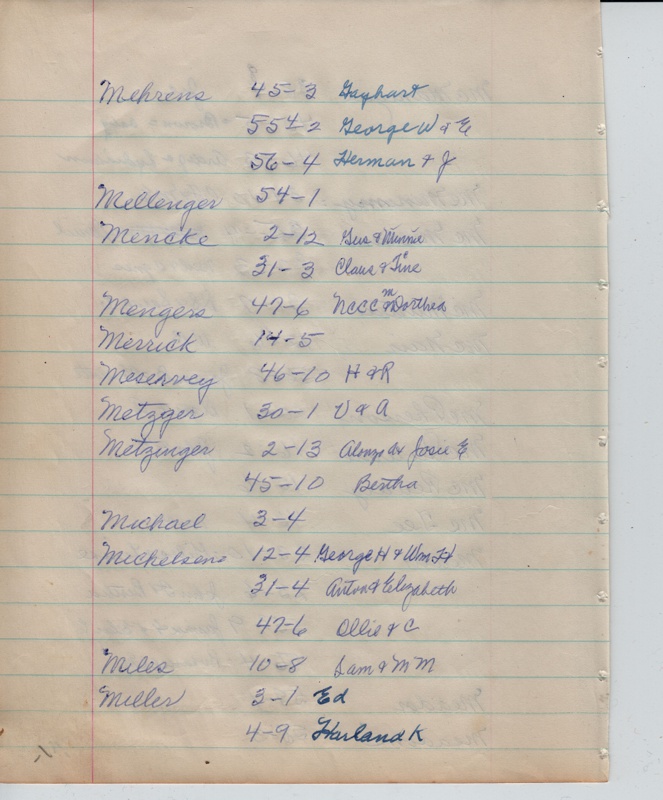 Mehrens 45-3 Gayhart
55-2 George W & E
56-4 Herman & J
Mellenger 54-1
Mencke 2-12 Gus & Minnie
31-3 Claus & Tine
Mengers 47-6 Dorthea
Merrick 14-5
Meservey 46-10 H & R
Metzger 30-1 V & A
Metzinger 2-13 Alonzo & Josie E
45-10 Bertha
Michael 3-4
Michelsens 12-4 George H & Wm H
31-4 Anton & Elizabeth
47-6 Ollie & C
Miles 10-8 Sam & M M
Miller 3-1 Ed
4-9 Harland K
-1